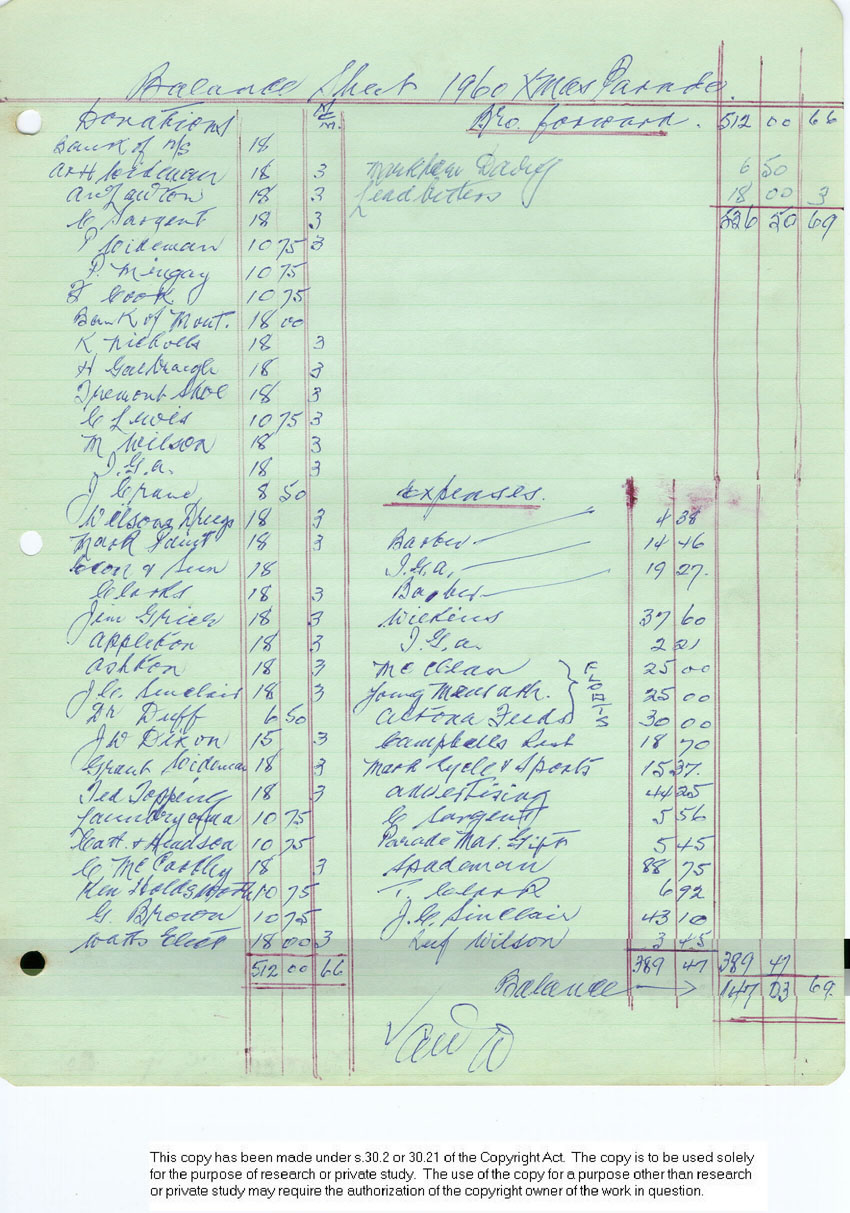 Balance Sheet 1960 Xmas Parade.
Donations N.E.M.
Bank of N/S 18
Wideman 18 3
Lawton 18 3
C Sargent 18 3
P Wideman 10 75 3
P. Mingay 10 75
F Cook 10 75
Bank of Mont. 18 00
K Nicholls 18 3
H Galbraigh 18 3
Tremont Shoe 18 3
C Lewis 10 75 3
M Wilson 18 3
I.G.A. 18 3
J 8 50
Wilsons Drugs 18 3
Mark Paint 18 3
& Sun 18
Clarks 18 3
Jim 18 3
Appleton 18 3
Ashton 18 3
J.C. Sinclair 18 3
Dr Duff 6 50
JW Dixon 15 3
Grant Wideman 18 3
Ted Topping 18 3
Laundryama 10 75
Catt. & Hudson 10 75
C McCarthy 18 3
Ken Holdsworth 10 75
G. Brown 10 75
Watts 18 00 3
512 00 66
Bro. forward. 512 00 66
Markham 6 50
Leadbitters 18 00 3
536 50 69
Expenses.
4 38
Barber 14 46
I.G.A. 19 27.
Barber
Wilkins 37 60
I.G.A. 2 21
McClean 25 00
Young Mens Ath. 25 00
Altona Feeds 30 00
FLOATS
Campbells Rest 18 70
Mark Cycle & Sports 15 37.
Advertising 44 25
C Sargent 5 56
Parade Mar. Gift 5 45
Spademan 88 75
T. 6 92
J.C Sinclair 43 10
Wilson 3 45
389 47 389 47
Balance 147 03 69
This copy has been made under s.30.2 or 30.21 of the Copyright Act. The copy is to be used solely
for the purpose of research or private study. The use of the copy for a purpose other than research
or private study may require the authorization of the copyright owner of the work in question.